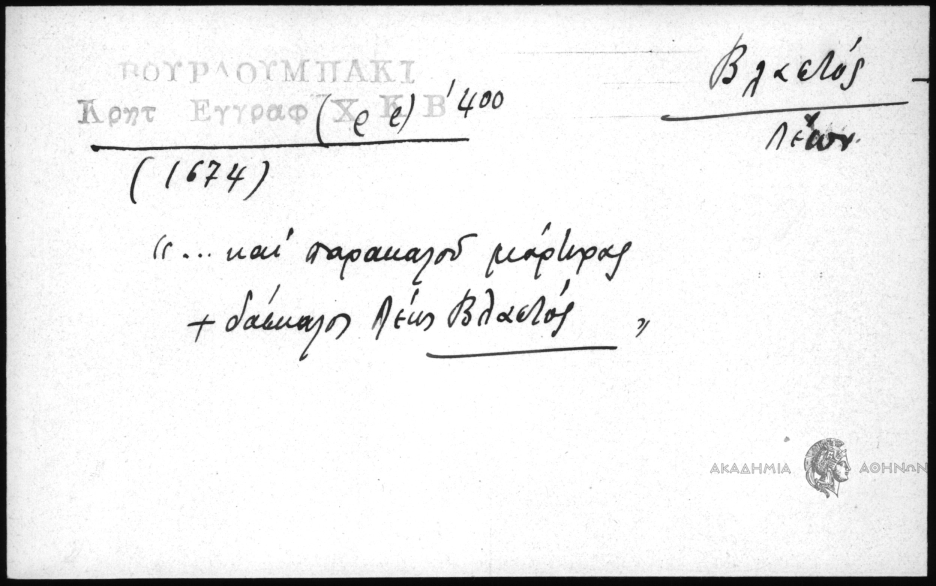 ΒΟΥΡΔΟΥΜΠΑΚΙ
Κρητ Εγγραφ Χ Κ Β' 400
(ρ ε)
(1674)
Βλαστός
Λέων
"... καὶ παρακαλοῦ μάρτυρας
+ δάσκαλος Λέως Βλαστός "
ΑΚΑΔΗΜΙΑ ΑΘΗΝΩΝ